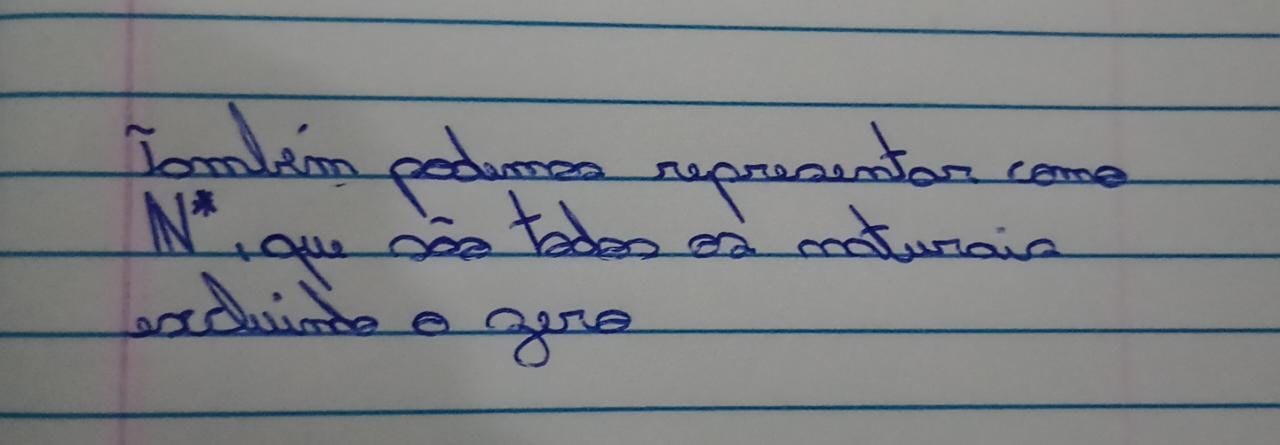 Também podemos representar como
N*, que são todos os naturais
excluindo o zero